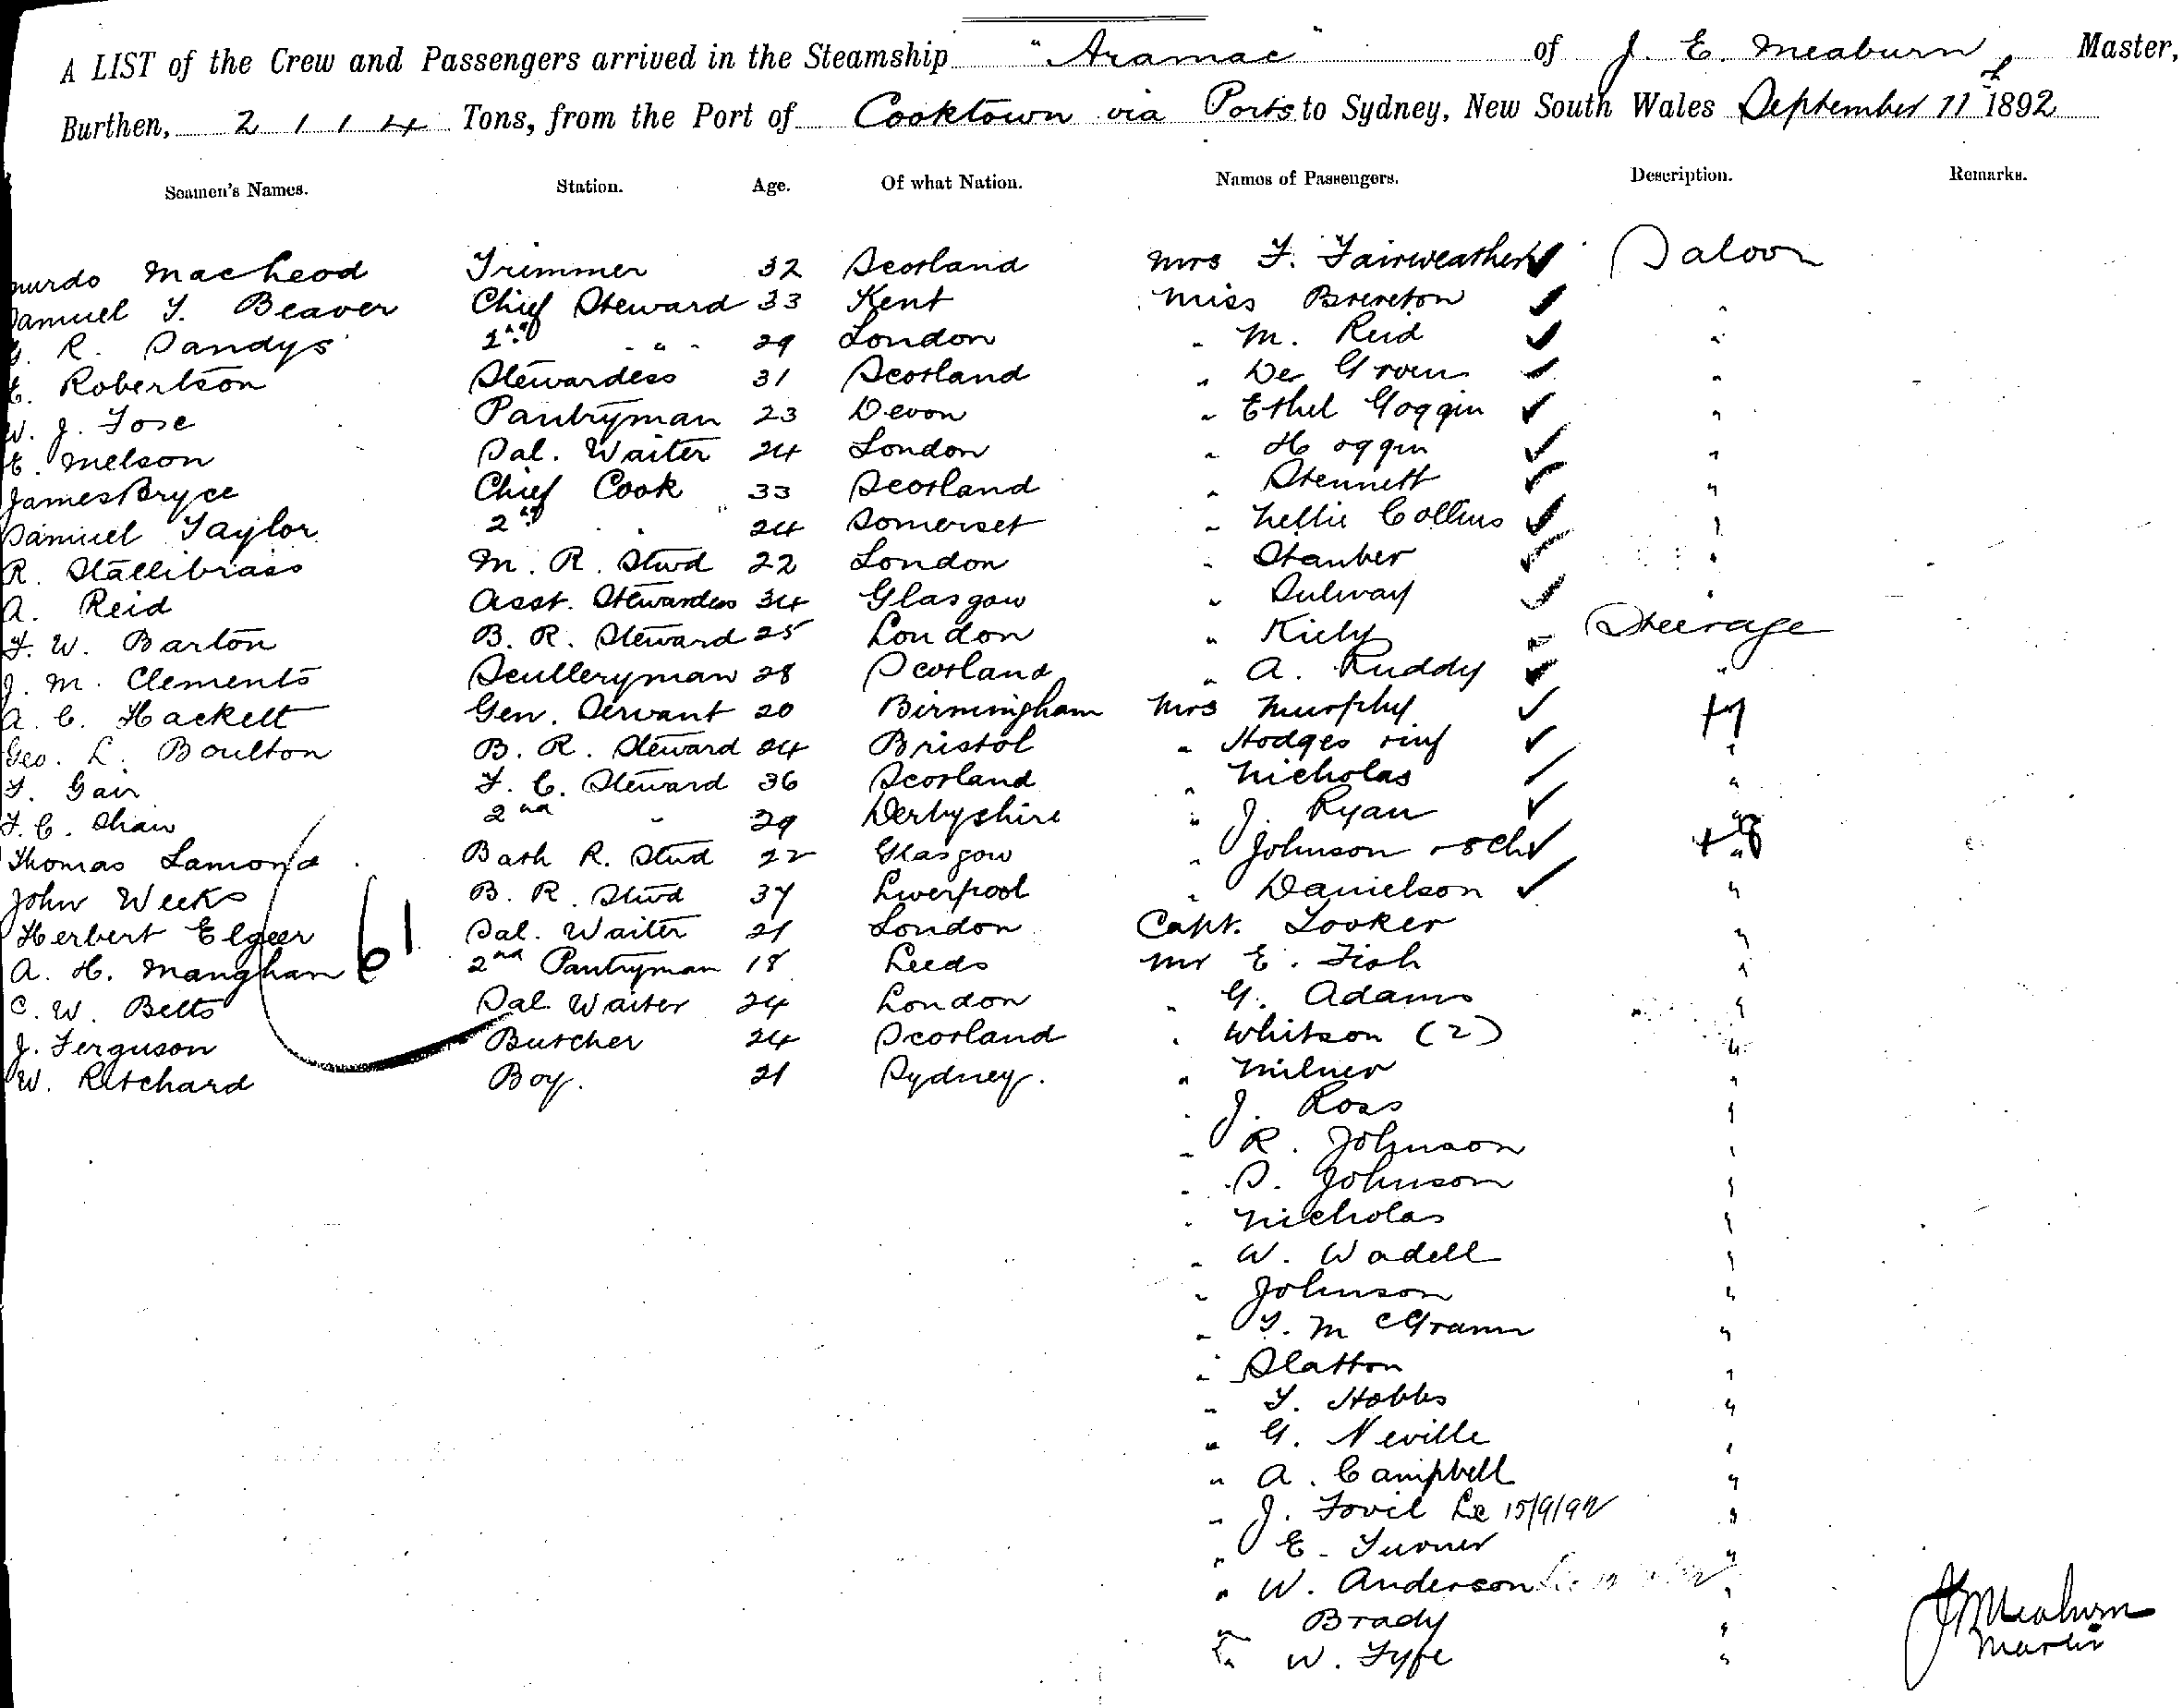 A LIST of the Crew and Passengers arrived in the Steamship "Aramac" of J. E. Meaburn, Master,
Burthen, 2114 Tons, from the Port of Cooktown via Ports to Sydney, New South Wales September 11th 1892
Seamen's Names. Station. Age. Of what Nation. Names of Passengers. Description. Remarks.
murdo MacLeod Trimmer 32 Scotland Mrs F. Fairweather ✓ Saloon
Samuel T. Beaver Chief Steward 33 Kent Miss Brereton ✓ "
G. R. Sandys 2nd " " 29 London " M. Reid ✓ "
E. Robertson Stewardess 31 Scotland " De Groen ✓ "
W. J. Tose Pantryman 23 Devon " Ethel Goggin ✓ "
E. Melson Sal. Waiter 24 London " Hoggin ✓ "
James Bryce Chief Cook 33 Scotland " Stennett ✓ "
Samuel Taylor 2nd " 24 Somerset " Nellie Collins ✓ "
R. Stallibrass M. R. Stwd 22 London " Stanber ✓ "
A. Reid Asst. Stewardess 34 Glasgow " Sulway ✓ "
F. W. Barton B. R. Steward 25 London " Kiely " Steerage
J. M. Clements Sculleryman 28 Scotland " A. Ruddy ✓ "
A. C. Hackett Gen. Servant 20 Birmingham Mrs Murphy ✓
Geo. L. Boulton B. R. Steward 24 Bristol " Hodges inf ✓ "
F. Gair F. C. Steward 36 Scotland " Nicholas ✓ "
F. C. Shaw 2nd " 29 Derbyshire " J. Ryan ✓ "
Thomas Lamond Bath R. Stwd 22 Glasgow " Johnson ✓ "
John Weeks B. R. Stwd 37 Liverpool " Danielson ✓ "
Herbert Elgeer 61 Sal. Waiter 21 London Capt. Looker "
A. H. Mangham 2nd Pantryman 18 Leeds Mr E. Fish "
C. W. Betts Sal. Waiter 24 London " G. Adams "
J. Ferguson Butcher 24 Scotland " Whitson (2) "
W. Ritchard Boy. 21 Sydney. " Milner "
" J. Ross "
" R. Johnson "
" S. Johnson "
" Nicholas "
" W. Wadell "
" Johnson "
" T. McGrann "
" Slatton "
" T. Hobbs "
" G. Neville "
" A. Campbell "
" J. Fovil Le 15/9/92 "
" E. Turner "
" W. Anderson "
" Brady "
" W. Fyfe "
J E Meaburn
Master